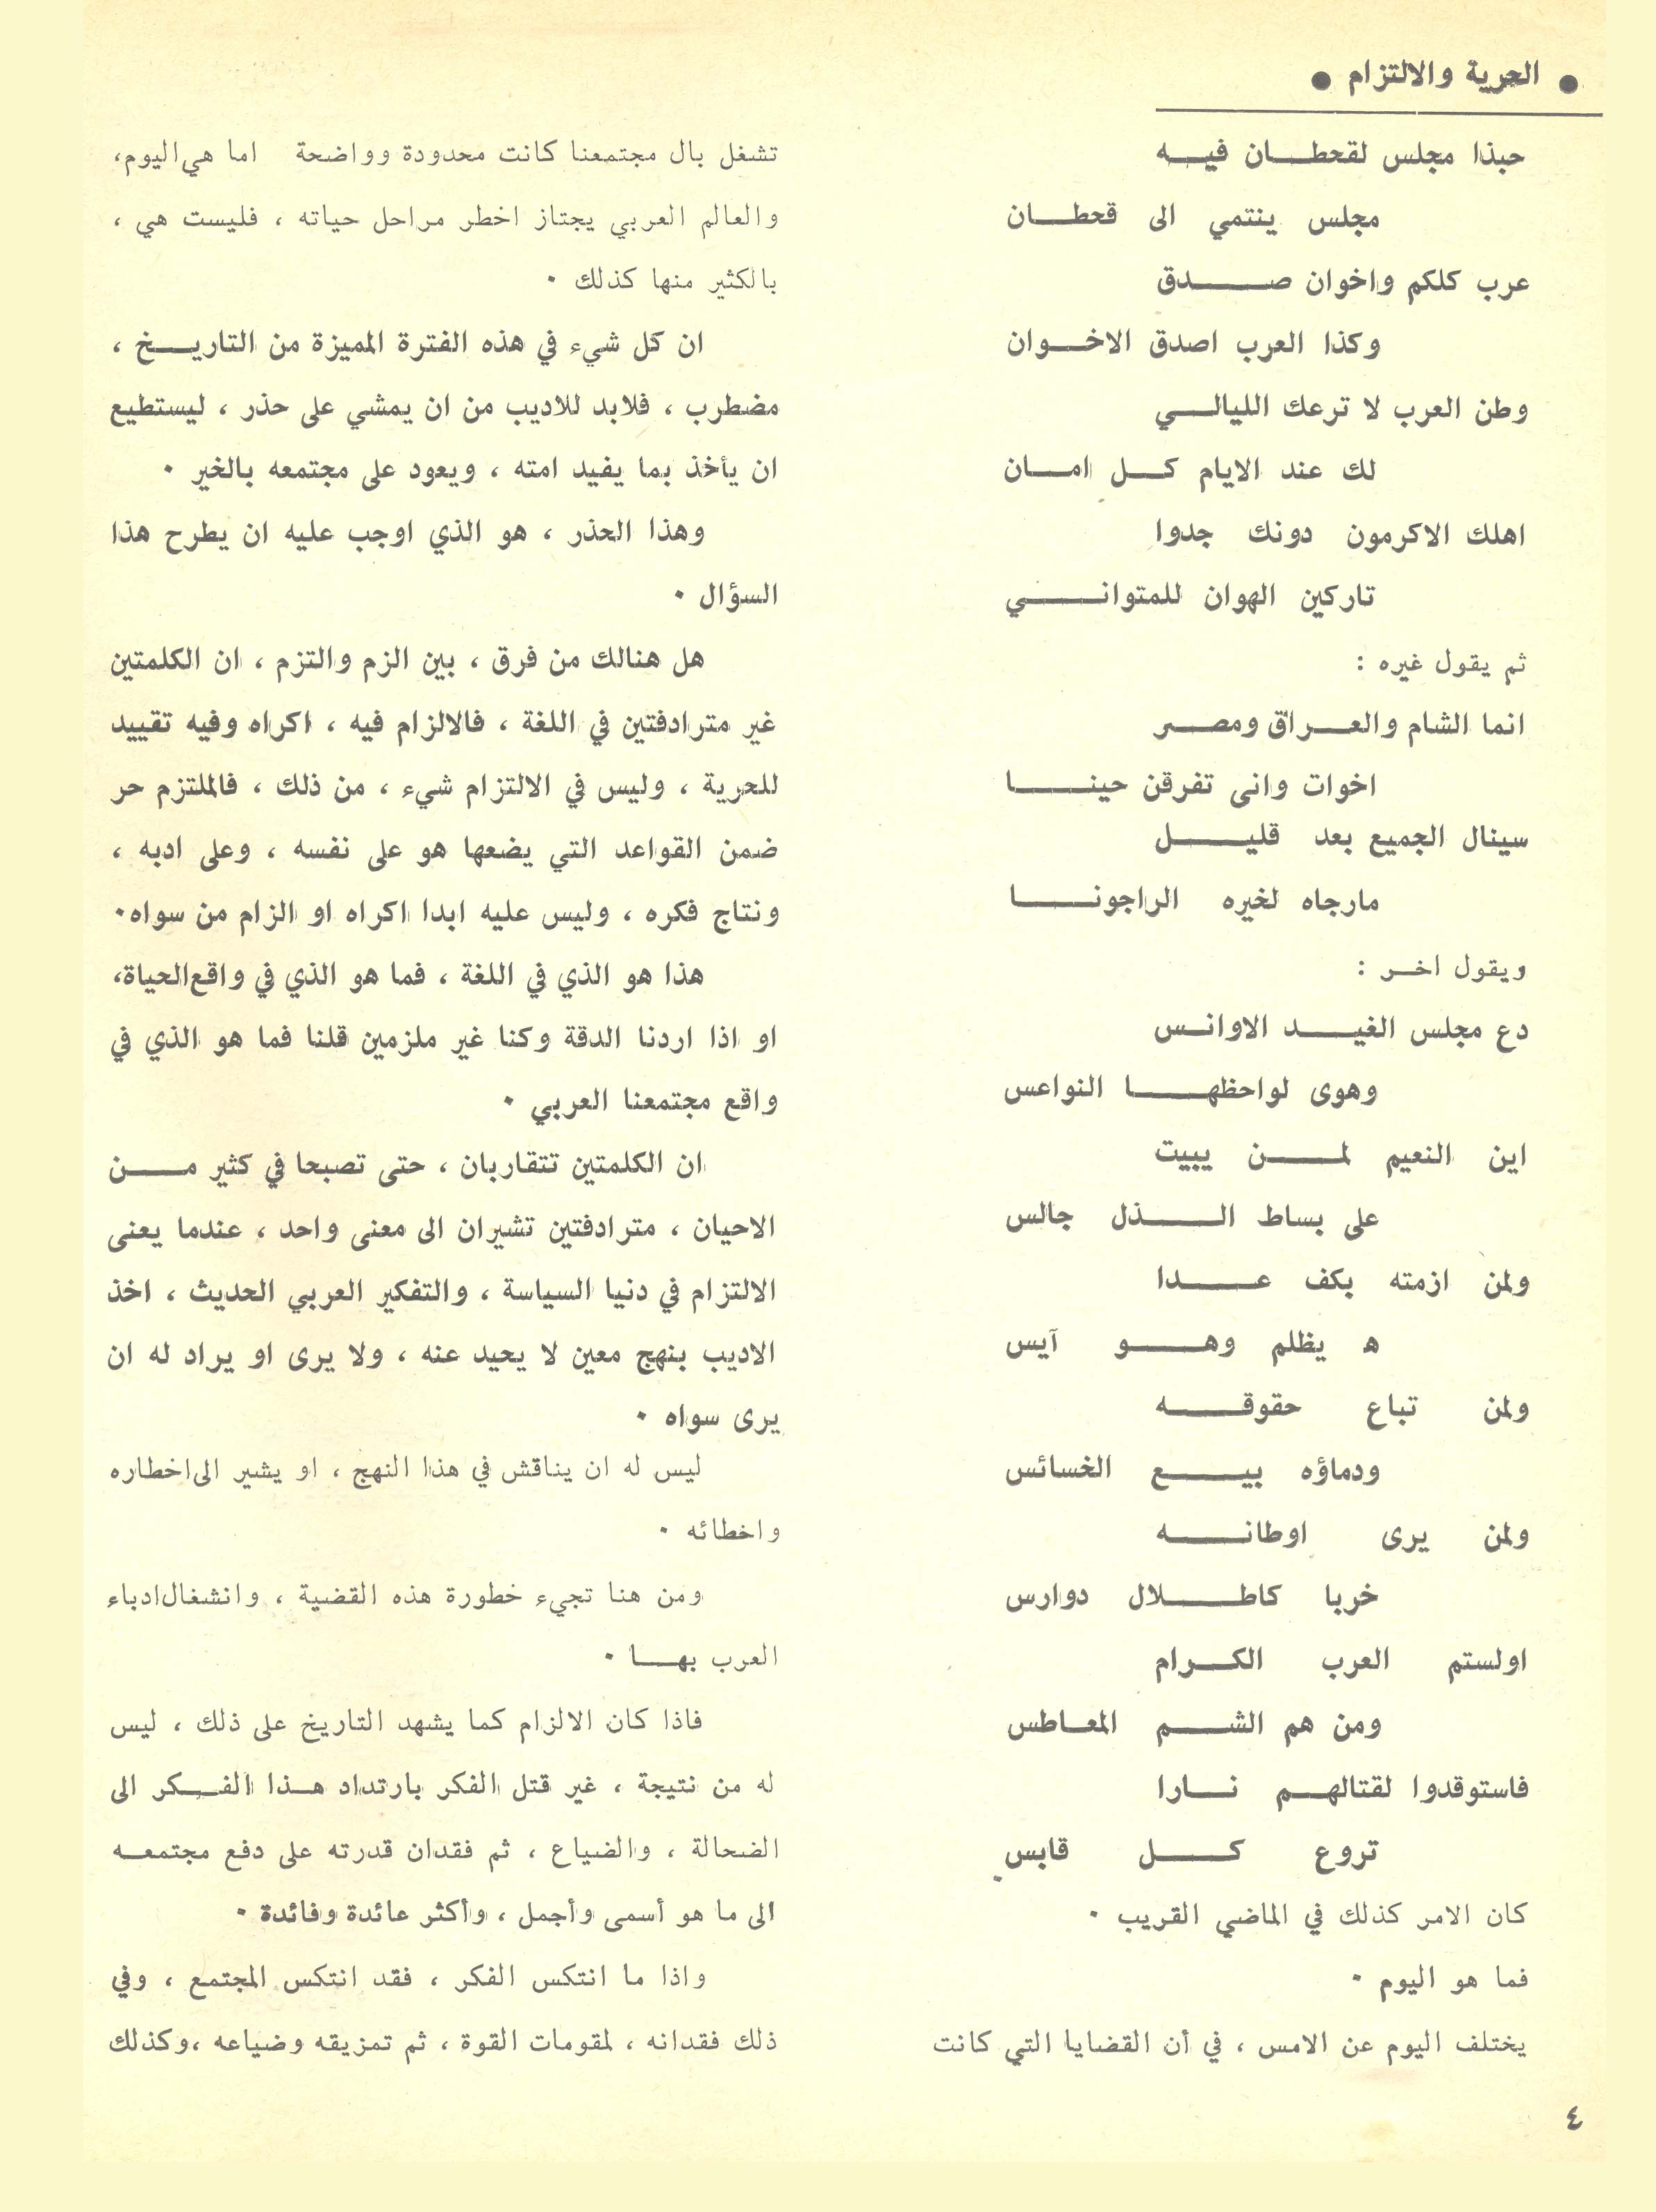 ● الحرية والالتزام ●
حبذا مجلس لقحطان فيه
مجلس ينتمي الى قحطان
عرب كلكم واخوان صدق
وكذا العرب اصدق الاخوان
وطن العرب لا ترعك الليالي
لك عند الايام كل امان
اهلك الاكرمون دونك جدوا
تاركين الهوان للمتواني
ثم يقول غيره :
انما الشام والعراق ومصر
اخوات وانى تفرقن حينا
سينال الجميع بعد قليل
مارجاه لخيره الراجونا
ويقول اخر :
دع مجلس الغيد الاوانس
وهوى لواحظها النواعس
اين النعيم لمن يبيت
على بساط الذل جالس
ولمن ازمته بكف عدا
ه يظلم وهو آيس
ولمن تباع حقوقه
ودماؤه بيع الخسائس
ولمن يرى اوطانه
خربا كاطلال دوارس
اولستم العرب الكرام
ومن هم الشم المعاطس
فاستوقدوا لقتالهم نارا
تروع كل قابس
كان الامر كذلك في الماضي القريب ٠
فما هو اليوم ٠
يختلف اليوم عن الامس ، في أن القضايا التي كانت
تشغل بال مجتمعنا كانت محدودة وواضحة اما هي اليوم،
والعالم العربي يجتاز اخطر مراحل حياته ، فليست هي ،
بالكثير منها كذلك ٠
ان كل شيء في هذه الفترة المميزة من التاريخ ،
مضطرب ، فلابد للاديب من ان يمشي على حذر ، ليستطيع
ان يأخذ بما يفيد امته ، ويعود على مجتمعه بالخير ٠
وهذا الحذر ، هو الذي اوجب عليه ان يطرح هذا
السؤال ٠
هل هنالك من فرق ، بين الزم والتزم ، ان الكلمتين
غير مترادفتين في اللغة ، فالالزام فيه ، اكراه وفيه تقييد
للحرية ، وليس في الالتزام شيء ، من ذلك ، فالملتزم حر
ضمن القواعد التي يضعها هو على نفسه ، وعلى ادبه ،
ونتاج فكره ، وليس عليه ابدا اكراه او الزام من سواه٠
هذا هو الذي في اللغة ، فما هو الذي في واقع الحياة،
او اذا اردنا الدقة وكنا غير ملزمين قلنا فما هو الذي في
واقع مجتمعنا العربي ٠
ان الكلمتين تتقاربان ، حتى تصبحا في كثير من
الاحيان ، مترادفتين تشيران الى معنى واحد ، عندما يعنى
الالتزام في دنيا السياسة ، والتفكير العربي الحديث ، اخذ
الاديب بنهج معين لا يحيد عنه ، ولا يرى او يراد له ان
يرى سواه ٠
ليس له ان يناقش في هذا النهج ، او يشير الى اخطاره
واخطائه ٠
ومن هنا تجيء خطورة هذه القضية ، وانشغال ادباء
العرب بها ٠
فاذا كان الالزام كما يشهد التاريخ على ذلك ، ليس
له من نتيجة ، غير قتل الفكر بارتداد هذا الفكر الى
الضحالة ، والضياع ، ثم فقدان قدرته على دفع مجتمعه
الى ما هو أسمى وأجمل ، وأكثر عائدة وفائدة ٠
واذا ما انتكس الفكر ، فقد انتكس المجتمع ، وفي
ذلك فقدانه ، لمقومات القوة ، ثم تمزيقه وضياعه ،وكذلك
٤